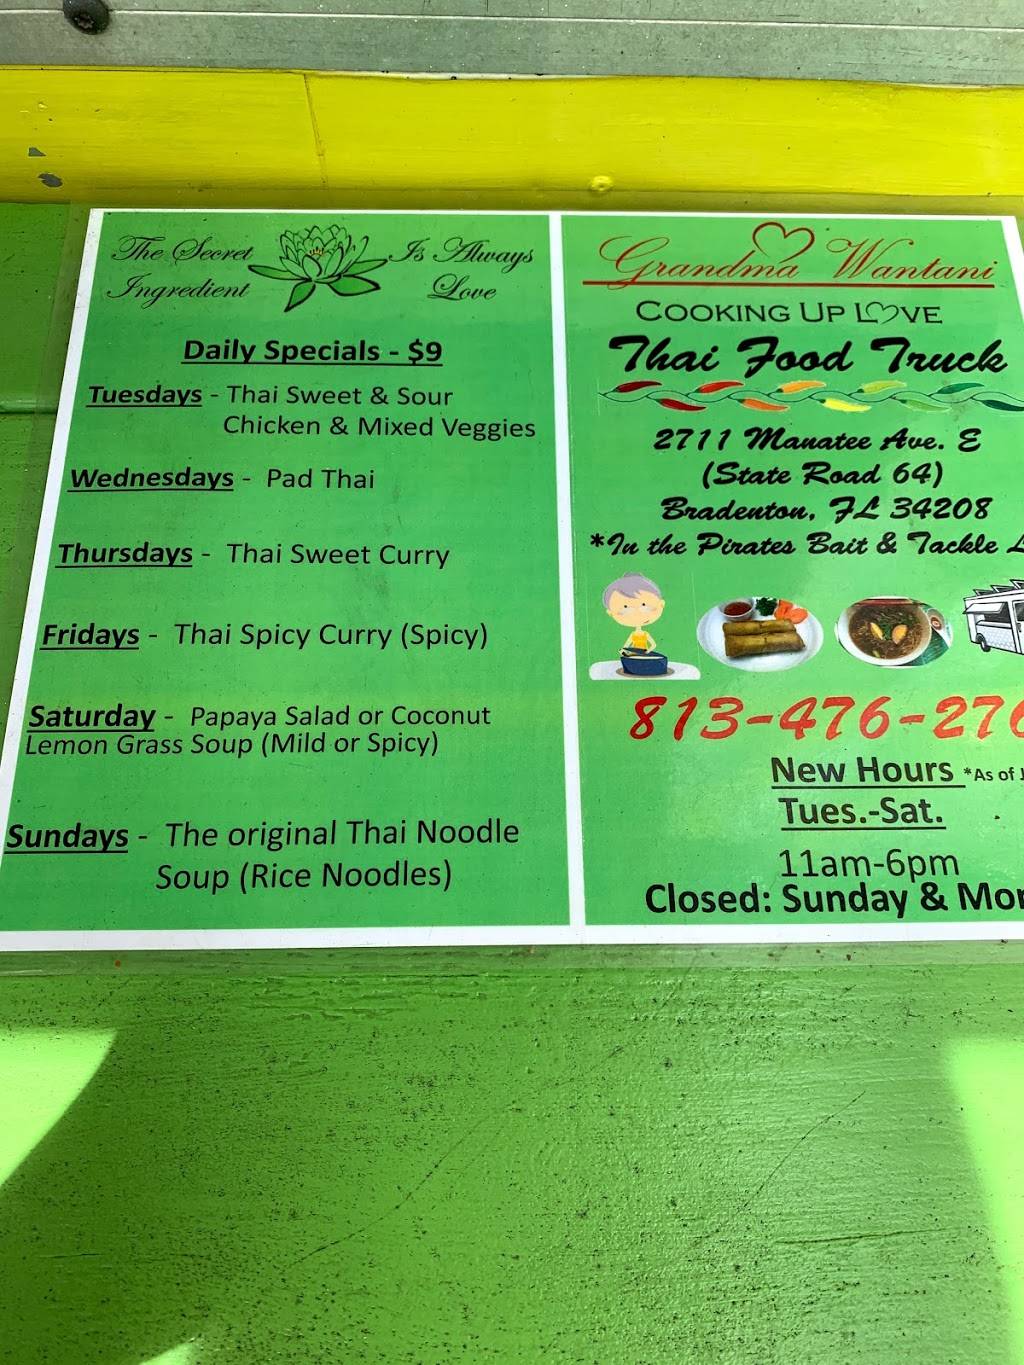 The Secret Is Always
Ingredient Love
Daily Specials - $9
Tuesdays - Thai Sweet & Sour
Chicken & Mixed Veggies
Wednesdays - Pad Thai
Thursdays - Thai Sweet Curry
Fridays - Thai Spicy Curry (Spicy)
Saturday - Papaya Salad or Coconut
Lemon Grass Soup (Mild or Spicy)
Sundays - The original Thai Noodle
Soup (Rice Noodles)
Grandma Wantani
COOKING UP LOVE
Thai Food Truck
2711 Manatee Ave. E
(State Road 64)
Bradenton, FL 34208
*In the Pirates Bait & Tackle
813-476-276
New Hours *As of
Tues.-Sat.
11am-6pm
Closed: Sunday &